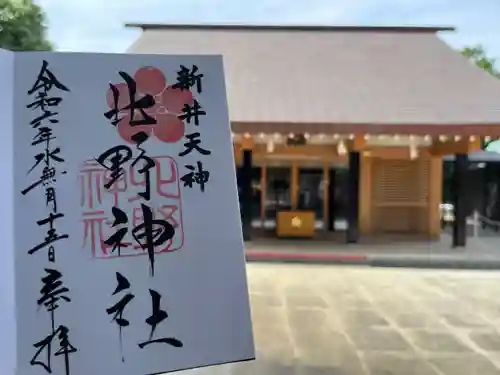 新井天神
北野神社
令和六年水無月十五日
奉拝
北野
神社